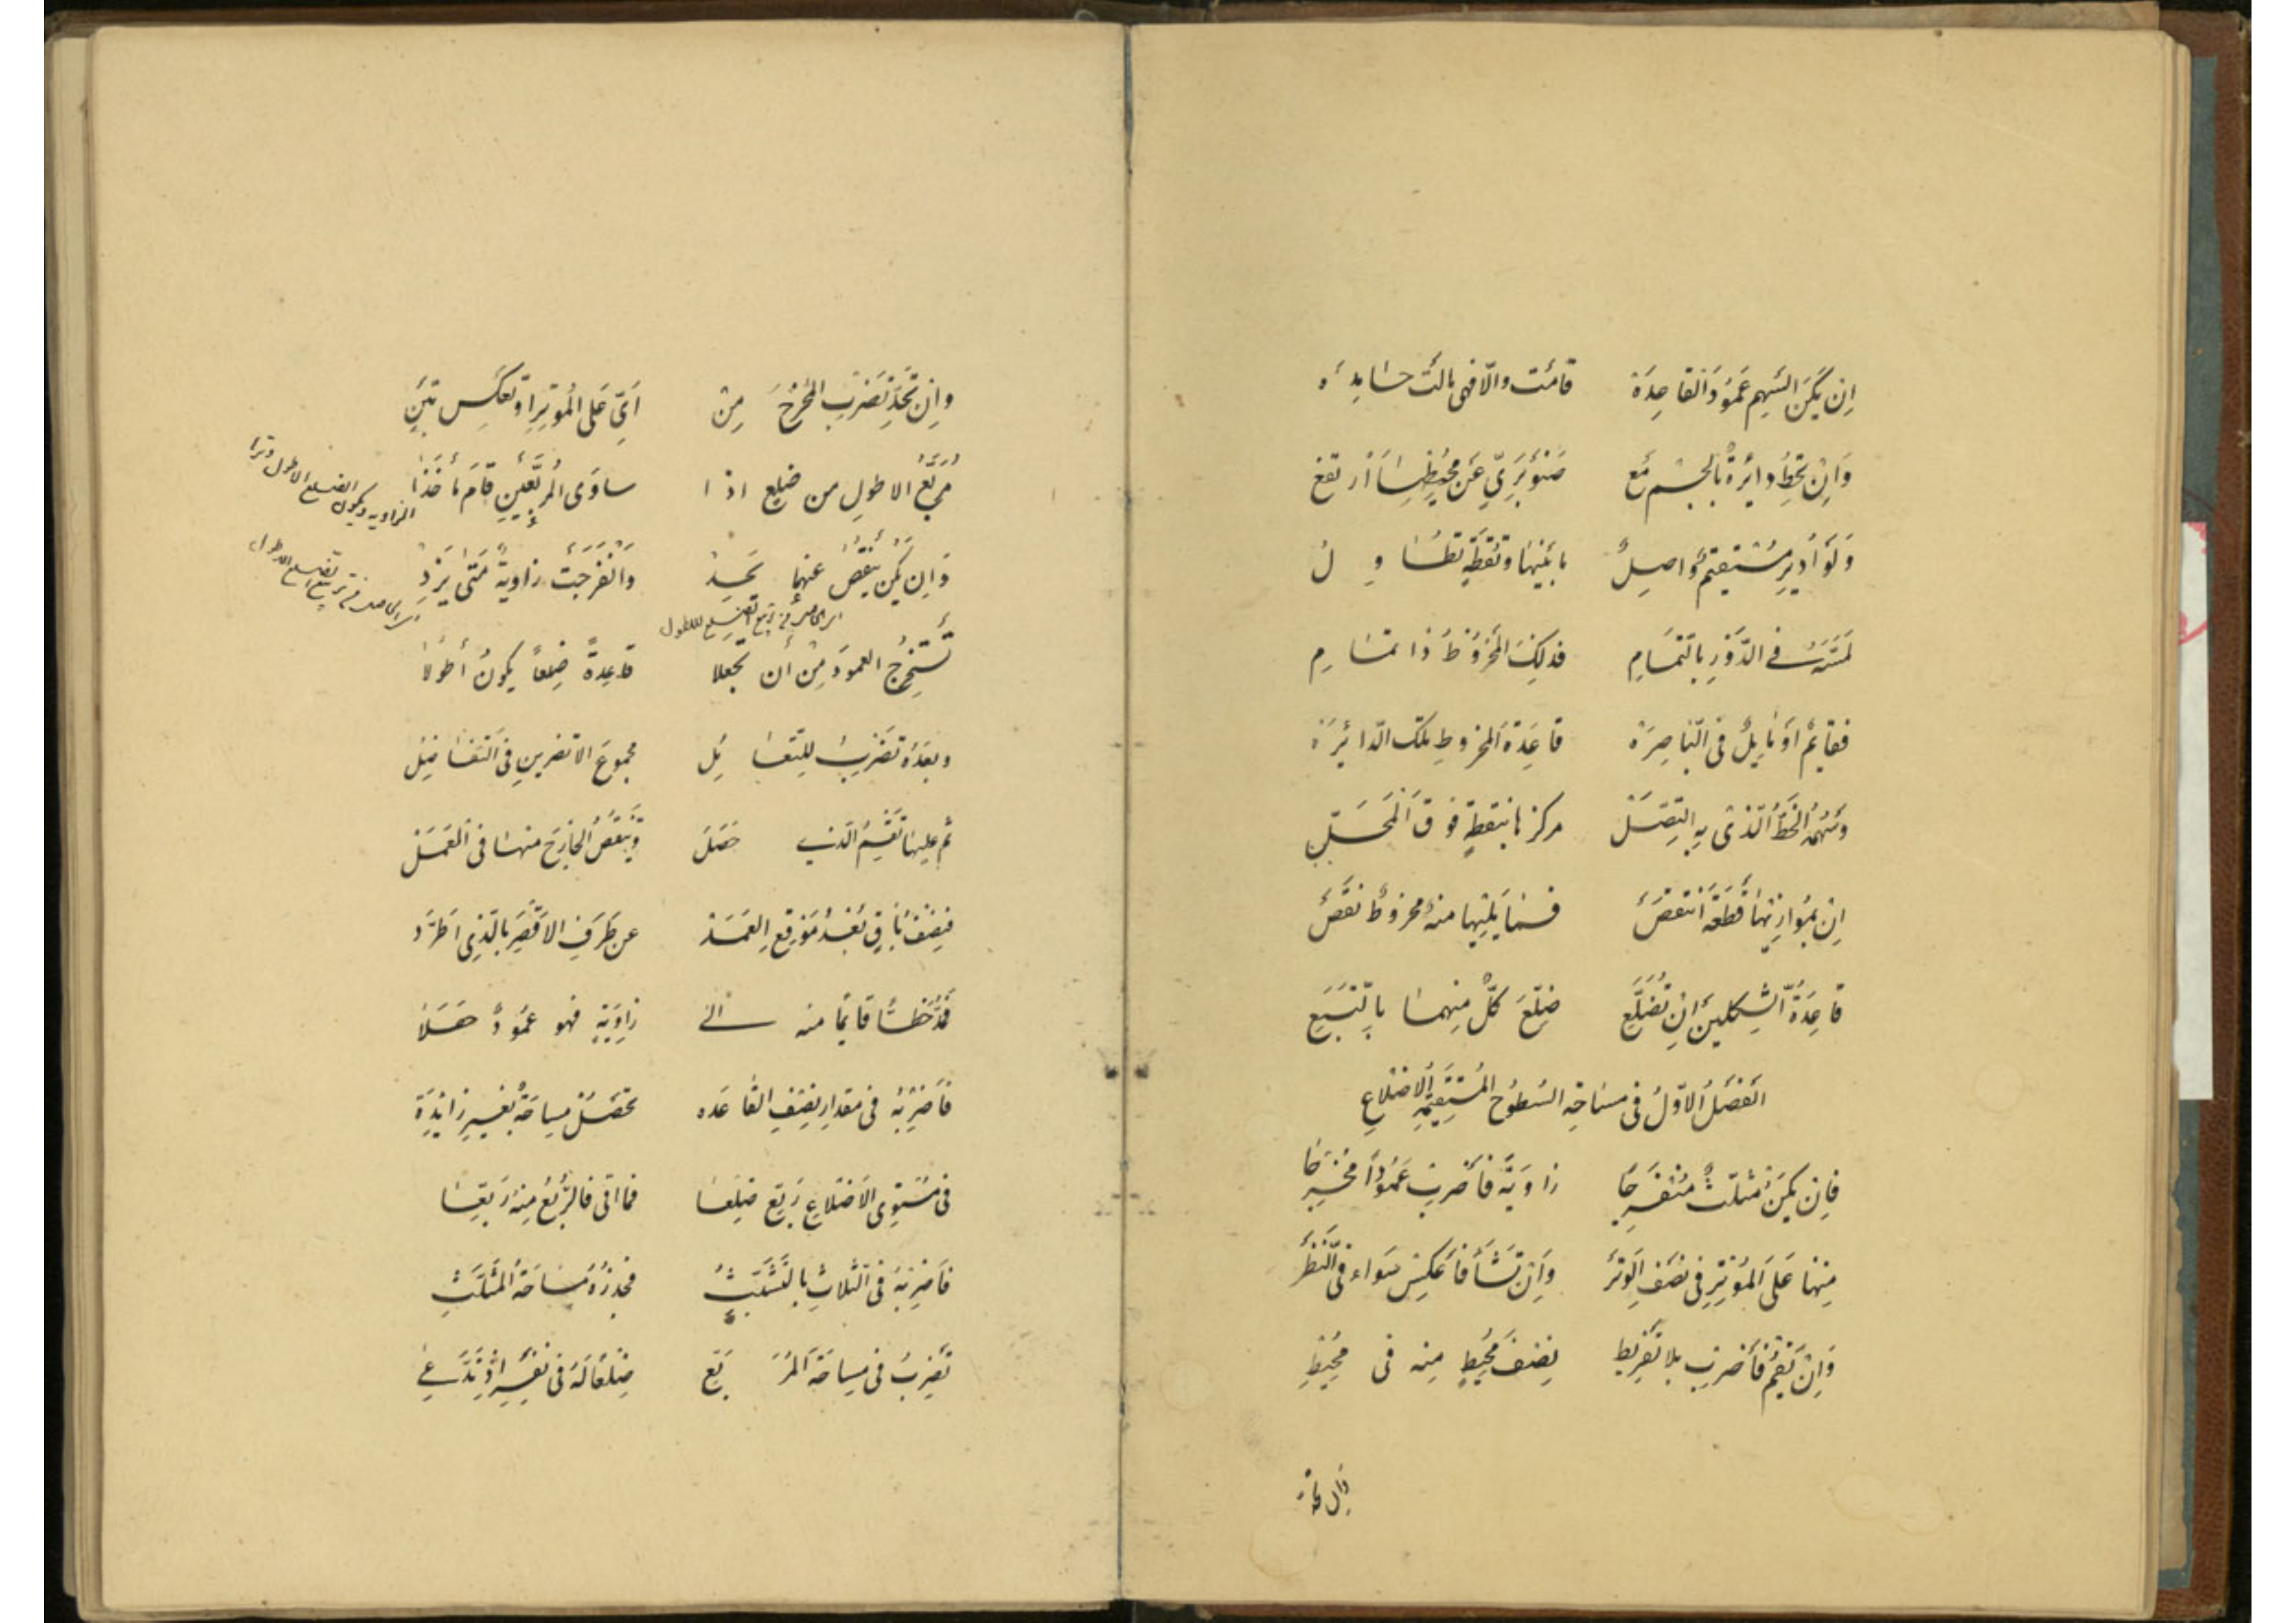 اِن يَكُنِ السَّهم عَمودَ القاعِدَة قامَت والّا فهى مالَت حايدَه
وَاِن تُحِط دائرةٌ بالجسم مَع صَنوبَرىٍّ عَن محيطها ارتفع
وَلَو اُديرَ مُستقيمٌ واصلٌ ما بَينها ونُقطةٍ تطاول
فى الدَّورِ بالتّمام فذلِكَ المخروطُ
فقايمٌ اَو مايلٌ فى النّاصِرَة قاعِدَة المخروطِ تِلكَ الدّائرَة
وسَهمُهُ الخَطُّ الَّذى بِه اتَّصَل مركزها بنقطةٍ فوق المحلّ
اِن بمُوازيها قطعَةً انتقصَ فما يَليها منه مخروطٌ نَقَصَ
قاعِدَةُ الشّكلين اِن تُضَلَّع ضلّعَ كلٌّ منهما بالتّبَعِ
الفَصلُ الاوّلُ فى مساحةِ السُطوحِ المُستقيمَةِ الاضلاعِ
فاِن يَكُن مُثلّثٌ مُنفَرِجا زاوَيةً فاَضرِب عَمُوداً مُخرَجا
مِنها عَلَى المُوتِرِ فى نصفِ الوَتَر وَاِن تَشَأ فَاعكِس سَواء فى النَّظَر
وَاِن تَقُم فاَضرِب بلا تفريط نِصفَ مُحيطٍ مِنه فى محيطِ
وان تحدّ تَضرِبِ المُخرَجَ مِن اَىٍّ عَلى المُوتِرِ او تَعكِس تَبِن
مُرَبَّعُ الاطولِ من ضلعٍ اذا ساوَى المُربَّعَينِ قامَ مأخَذا
الزاويه ويكون الضلع الاطول وترا
وَاِن يَكُن يَنقُصُ عنهما تَحِد وَانفَرَجَت زاويةٌ مَتى يَزِد
اى الحاصل من تربيع الضلع الاطول
اى الحاصل من تربيع الضلع الاطول
تَستَخرِجُ العمودَ مِن أن تجعلا قاعِدةً ضِلعاً يكونُ أطولا
وبعدَهُ تَضرِبُ مجموعَ الاقصرينِ فى التّفاضُلِ
ثم عليها تَقسِمُ الّذى حَصَل وَيَنقُصُ الخارِجَ منها فى العَمَل
فنِصفُ باقٍ بُعدُ مَوقِعِ العَمَد عن طَرَفِ الاقصَرِ بالّذى اطَّرَد
خطًّا قايمًا منه الى زاوِيَةٍ فهو عَمودٌ
فاَضرِبهُ فى مقدارِ نِصفِ القاعده تحصل مساحَةٌ بغيرِ زائدَة
فى مُستَوِى الاَضلاعِ رَبِّع ضِلعَها فما اتى فالرُّبعُ مِنهُ رَبِّعها
فاَضرِبهُ فى الثّلاثِ بالتَّثَبُّثِ فجذرُهُ مساحَةُ المُثلَّثِ
تَضرِبُ فى مِساحَةِ المُرَبَّعِ ضِلعًا لَهُ فى نَفسِه